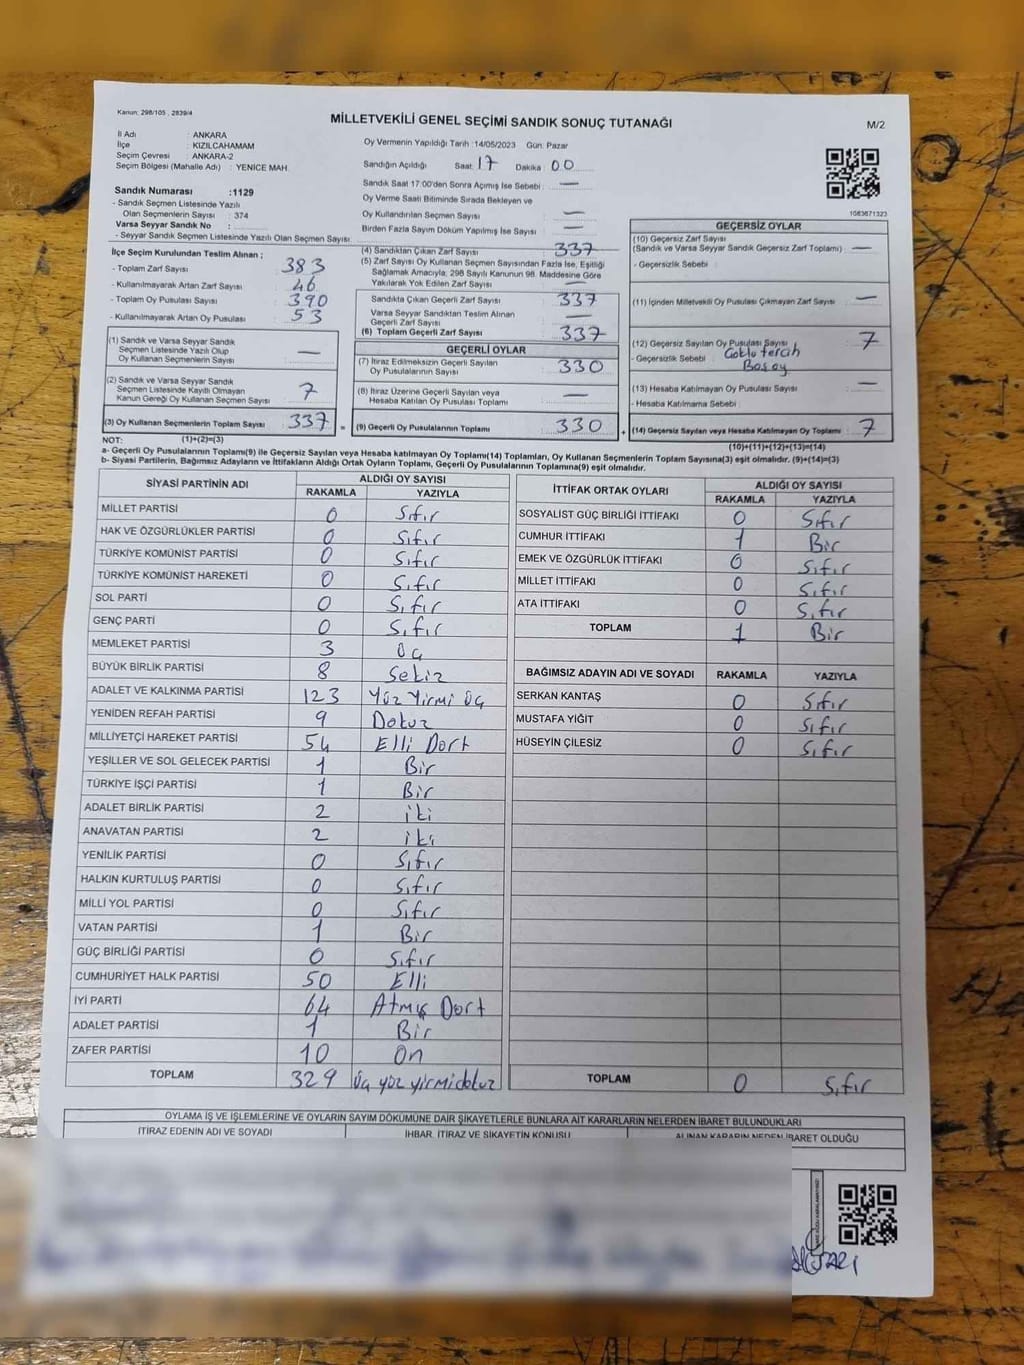 Kanun: 298/105 , 2839/4
MİLLETVEKİLİ GENEL SEÇİMİ SANDIK SONUÇ TUTANAĞI
M/2
İl Adı : ANKARA
İlçe : KIZILCAHAMAM
Seçim Çevresi : ANKARA-2
Seçim Bölgesi (Mahalle Adı) : YENİCE MAH.
Sandık Numarası :1129
- Sandık Seçmen Listesinde Yazılı
Olan Seçmenlerin Sayısı : 374
Varsa Seyyar Sandık No :
- Seyyar Sandık Seçmen Listesinde Yazılı Olan Seçmen Sayısı :
Oy Vermenin Yapıldığı Tarih :14/05/2023 Gün: Pazar
Sandığın Açıldığı Saat: 17 Dakika : 00
Sandık Saat 17:00'den Sonra Açımış İse Sebebi : —
Oy Verme Saati Bitiminde Sırada Bekleyen ve
Oy Kullandırılan Seçmen Sayısı : —
Birden Fazla Sayım Döküm Yapılmış İse Sayısı : —
1083671323
İlçe Seçim Kurulundan Teslim Alınan ;
- Toplam Zarf Sayısı : 383
- Kullanılmayarak Artan Zarf Sayısı : 46
- Toplam Oy Pusulası Sayısı : 390
- Kullanılmayarak Artan Oy Pusulası : 53
(1) Sandık ve Varsa Seyyar Sandık
Seçmen Listesinde Yazılı Olup
Oy Kullanan Seçmenlerin Sayısı : —
(2) Sandık ve Varsa Seyyar Sandık
Seçmen Listesinde Kayıtlı Olmayan
Kanun Gereği Oy Kullanan Seçmen Sayısı : 7
(3) Oy Kullanan Seçmenlerin Toplam Sayısı : 337 =
(4) Sandıktan Çıkan Zarf Sayısı : 337
(5) Zarf Sayısı Oy Kullanan Seçmen Sayısından Fazla İse, Eşitliği
Sağlamak Amacıyla, 298 Sayılı Kanunun 98. Maddesine Göre
Yakılarak Yok Edilen Zarf Sayısı : —
Sandıkta Çıkan Geçerli Zarf Sayısı : 337
Varsa Seyyar Sandıktan Teslim Alınan
Geçerli Zarf Sayısı : —
(6) Toplam Geçerli Zarf Sayısı : 337
GEÇERLİ OYLAR
(7) İtiraz Edilmeksizin Geçerli Sayılan
Oy Pusulalarının Sayısı : 330
(8) İtiraz Üzerine Geçerli Sayılan veya
Hesaba Katılan Oy Pusulası Toplamı : —
(9) Geçerli Oy Pusulalarının Toplamı : 330 +
GEÇERSİZ OYLAR
(10) Geçersiz Zarf Sayısı
(Sandık ve Varsa Seyyar Sandık Geçersiz Zarf Toplamı) : —
- Geçersizlik Sebebi :
(11) İçinden Milletvekili Oy Pusulası Çıkmayan Zarf Sayısı : —
(12) Geçersiz Sayılan Oy Pusulası Sayısı : 7
- Geçersizlik Sebebi : Çoklu tercih
Boş oy
(13) Hesaba Katılmayan Oy Pusulası Sayısı : —
- Hesaba Katılmama Sebebi :
(14) Geçersiz Sayılan veya Hesaba Katılmayan Oy Toplamı : 7
NOT: (1)+(2)=(3) (10)+(11)+(12)+(13)=(14)
a- Geçerli Oy Pusulalarının Toplamı(9) ile Geçersiz Sayılan veya Hesaba katılmayan Oy Toplamı(14) Toplamları, Oy Kullanan Seçmenlerin Toplam Sayısına(3) eşit olmalıdır. (9)+(14)=(3)
b- Siyasi Partilerin, Bağımsız Adayların ve İttifakların Aldığı Ortak Oyların Toplamı, Geçerli Oy Pusulalarının Toplamına(9) eşit olmalıdır.
SİYASİ PARTİNİN ADI ALDIĞI OY SAYISI
RAKAMLA YAZIYLA
MİLLET PARTİSİ 0 Sıfır
HAK VE ÖZGÜRLÜKLER PARTİSİ 0 Sıfır
TÜRKİYE KOMÜNİST PARTİSİ 0 Sıfır
TÜRKİYE KOMÜNİST HAREKETİ 0 Sıfır
SOL PARTİ 0 Sıfır
GENÇ PARTİ 0 Sıfır
MEMLEKET PARTİSİ 3 Üç
BÜYÜK BİRLİK PARTİSİ 8 Sekiz
ADALET VE KALKINMA PARTİSİ 123 Yüz Yirmi Üç
YENİDEN REFAH PARTİSİ 9 Dokuz
MİLLİYETÇİ HAREKET PARTİSİ 54 Elli Dört
YEŞİLLER VE SOL GELECEK PARTİSİ 1 Bir
TÜRKİYE İŞÇİ PARTİSİ 1 Bir
ADALET BİRLİK PARTİSİ 2 iki
ANAVATAN PARTİSİ 2 iki
YENİLİK PARTİSİ 0 Sıfır
HALKIN KURTULUŞ PARTİSİ 0 Sıfır
MİLLİ YOL PARTİSİ 0 Sıfır
VATAN PARTİSİ 1 Bir
GÜÇ BİRLİĞİ PARTİSİ 0 Sıfır
CUMHURİYET HALK PARTİSİ 50 Elli
İYİ PARTİ 64 Atmış Dört
ADALET PARTİSİ 1 Bir
ZAFER PARTİSİ 10 On
TOPLAM 329 Üç yüz yirmidokuz
İTTİFAK ORTAK OYLARI ALDIĞI OY SAYISI
RAKAMLA YAZIYLA
SOSYALİST GÜÇ BİRLİĞİ İTTİFAKI 0 Sıfır
CUMHUR İTTİFAKI 1 Bir
EMEK VE ÖZGÜRLÜK İTTİFAKI 0 Sıfır
MİLLET İTTİFAKI 0 Sıfır
ATA İTTİFAKI 0 Sıfır
TOPLAM 1 Bir
BAĞIMSIZ ADAYIN ADI VE SOYADI RAKAMLA YAZIYLA
SERKAN KANTAŞ 0 Sıfır
MUSTAFA YİĞİT 0 Sıfır
HÜSEYİN ÇİLESİZ 0 Sıfır
TOPLAM 0 Sıfır
OYLAMA İŞ VE İŞLEMLERİNE VE OYLARIN SAYIM DÖKÜMÜNE DAİR ŞİKAYETLERLE BUNLARA AİT KARARLARIN NELERDEN İBARET BULUNDUKLARI
İTİRAZ EDENİN ADI VE SOYADI İHBAR, İTİRAZ VE ŞİKAYETİN KONUSU ALINAN KARARIN NEDEN İBARET OLDUĞU